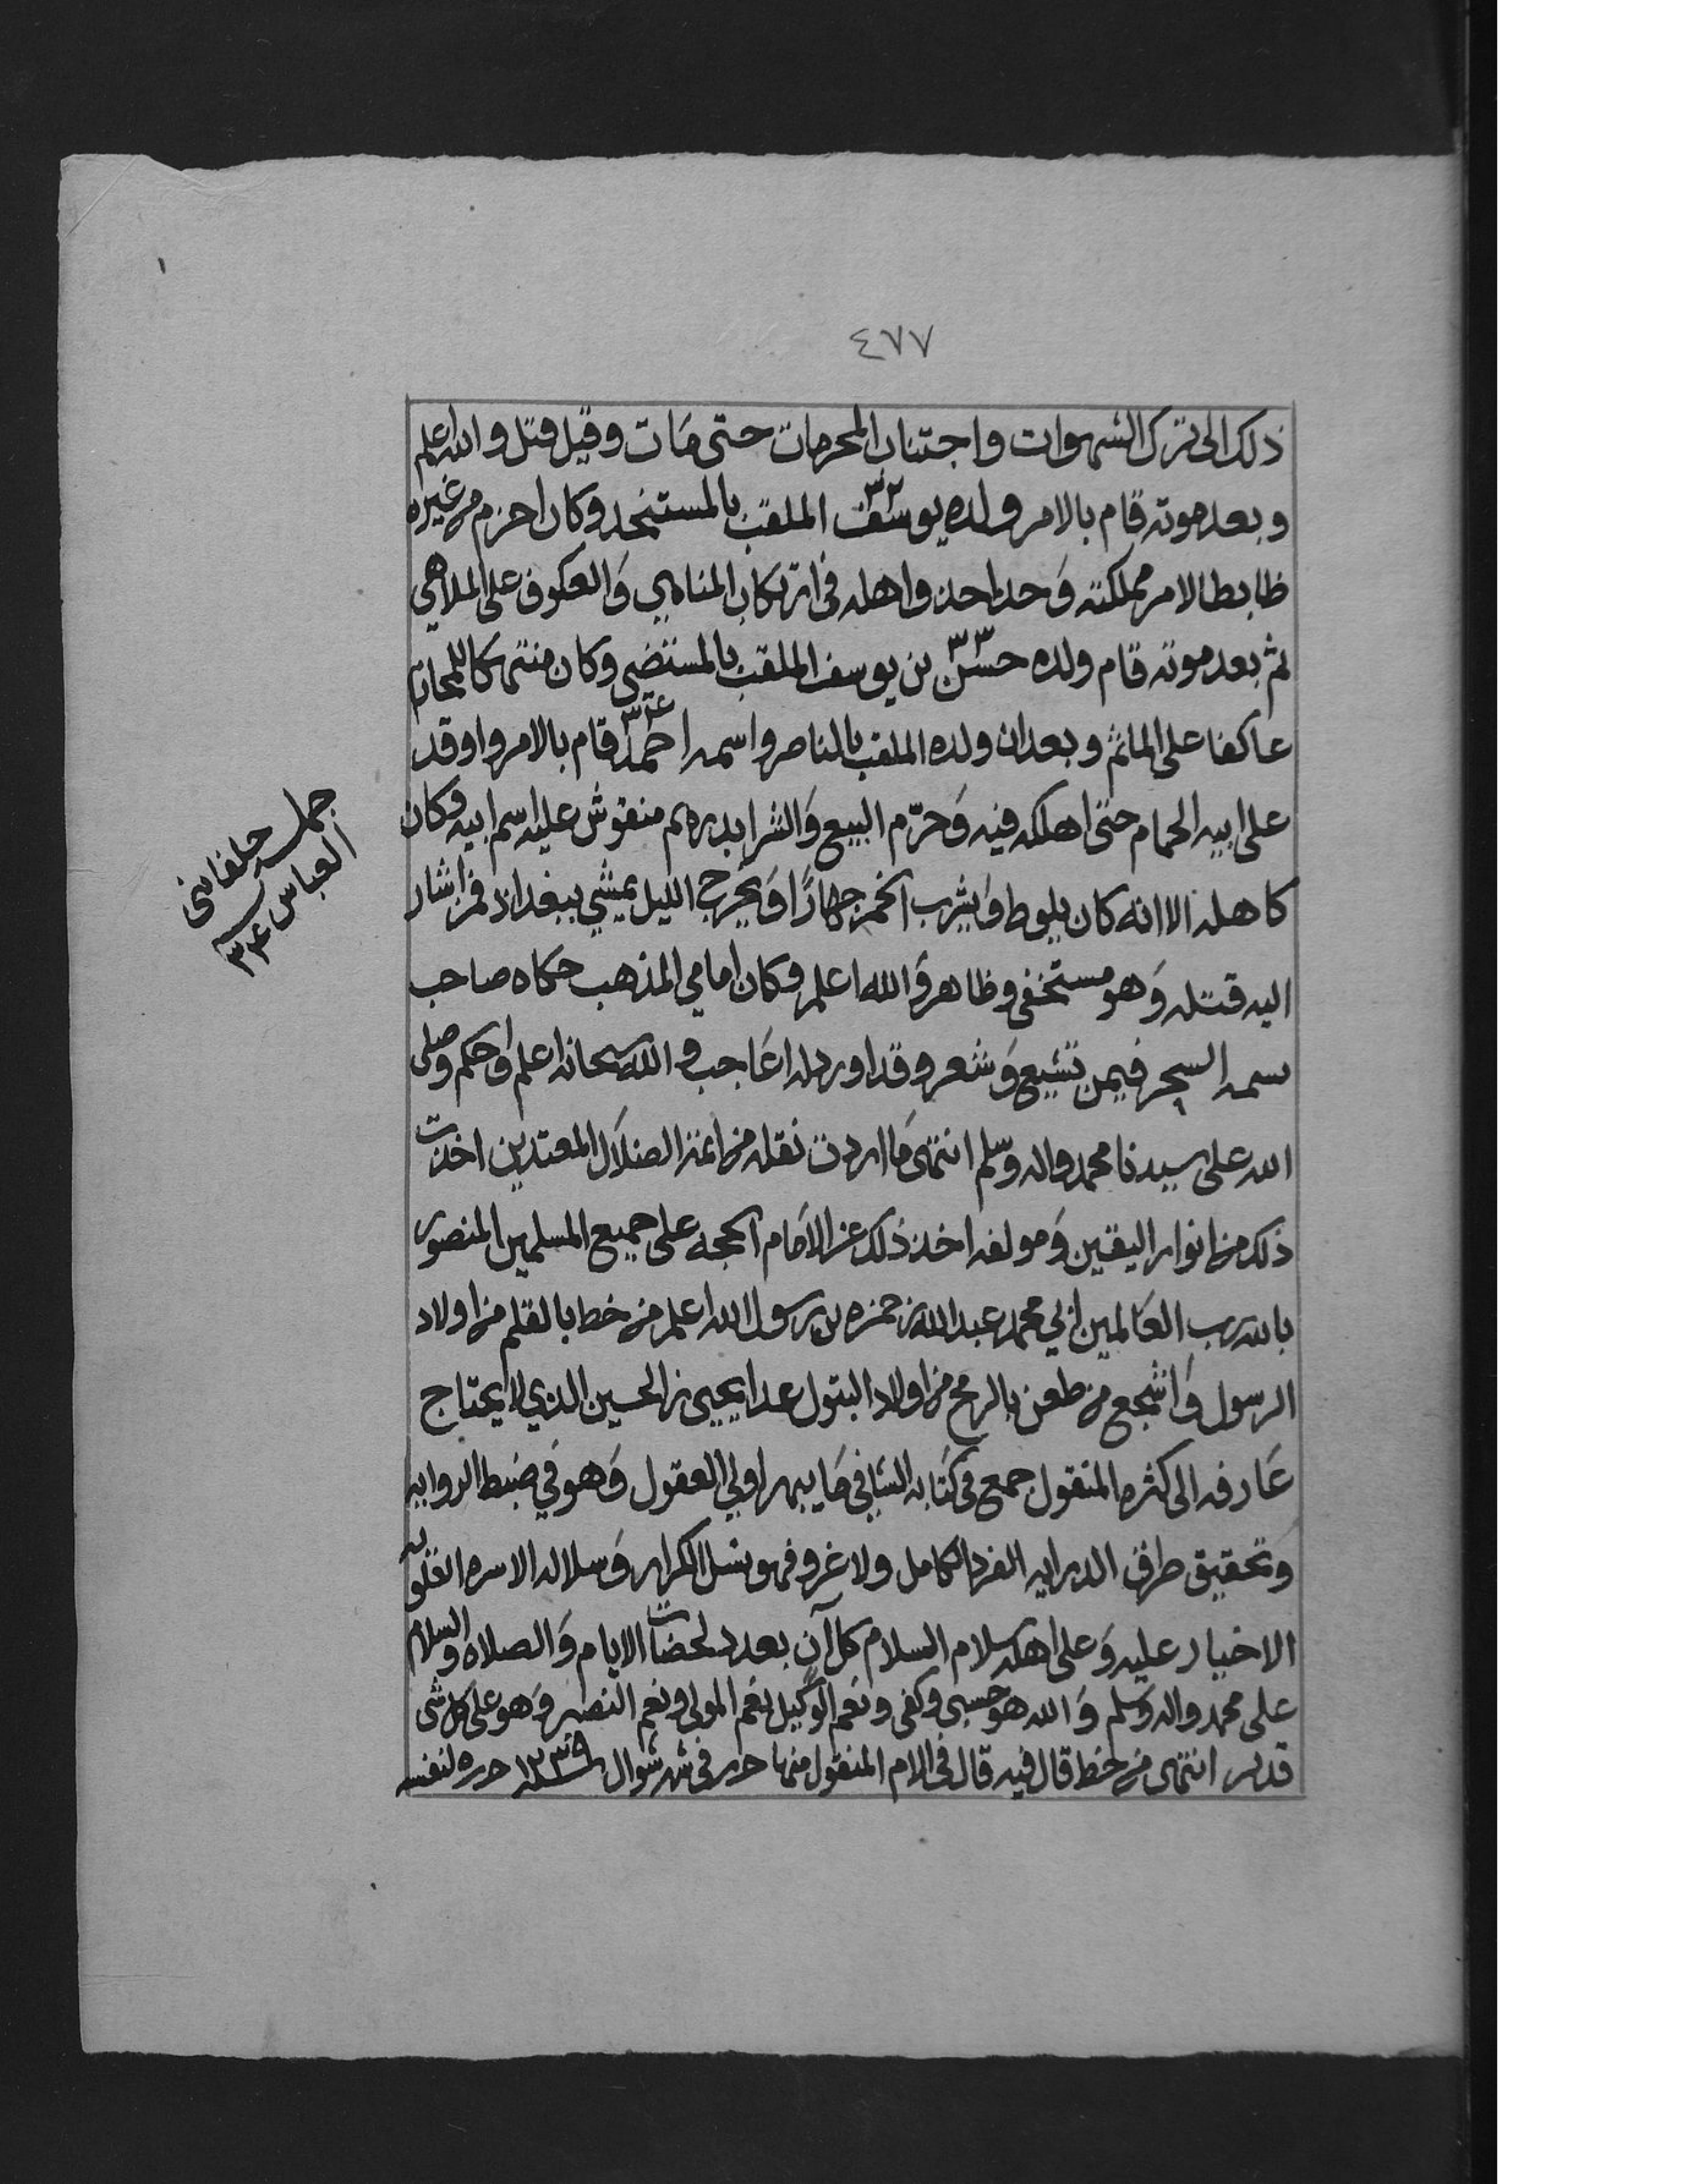 ٤٧٧
ذلك الى ترك الشهوات واجتناب المحرمات حتى مَات وقيل قتل والله اعلم
وبعد موته قام بالامر ولده يوسف ٣٢ الملقب بالمستنجد وكان احزم من غيره
ظابطا لامر مملكته وَحذا حذو اهله في ارتكاب المناهي وَالعكوف على الملاهي
ثم بعد موته قام ولده حسن ٣٣ بن يوسف الملقب بالمستضي وكان منتهكا للمحارم
عاكفا على المآثم وبعد ان ولده الملقب بالناصر واسمه احمد ٣٤ قام بالامر واوقد
على ابيه الحمام حتى اهلكه فيه وَحرّم البيع وَالشرا بدرهم منقوش عليه اسم ابيه وكان
كاهله الا انه كان يلوط وَيشرب الخمر جهارًا وَيخرج الليل يمشي ببغداد فمن اشار
اليه قتله وَهو مستخفي وظاهر وَالله اعلم وكان امامي المذهب حكاه صاحب
نسمه السحر فيمن تشيع وَشعر وقد اورد له اعَاجب والله سبحانه اعلم وَاحكم وصلى
الله على سيدنا محمد واله وسلم انتهى مَا اردت نقله من ائمة الضلال المعتدين اخذت
ذلك من انوار اليقين وَمولفه اخذ ذلك عن الامَام الحجه على جميع المسلمين المنصور
بالله رب العَالمين ابي محمد عبد الله بن حمزه بن رسول الله اعلم من خط بالقلم من اولاد
الرسول وَاشجع من طعن بالرمح من اولاد البتول عدا يحيى بن الحسين الذي لا يحتاج
عَارفه الى كثره المنقول جمع في كتابه الشافي مَا يبهر اولي العقول وَهو في ضبط الروايه
وَتحقيق طرق الدرايه الفرد الكامل ولا غرو فهو نسل الكرار وَسلاله الاسره العلويه
الاخيار عليه وَعلى اهله سلام السلام كل آن بعدد لحضات الايام وَالصلاه والسلام
على محمد واله وسلم وَالله هو حسبي وكفى ونعم الوكيل نعم المولى ونعم النصير وَهو على كل شى
قدير انتهى من خط قال فيه قال في الام المنقول منها حرر في شهر شوال سنة ١٢٣٩ حرره لنفسه
جملة خلفا بنى
العباس
٣٤